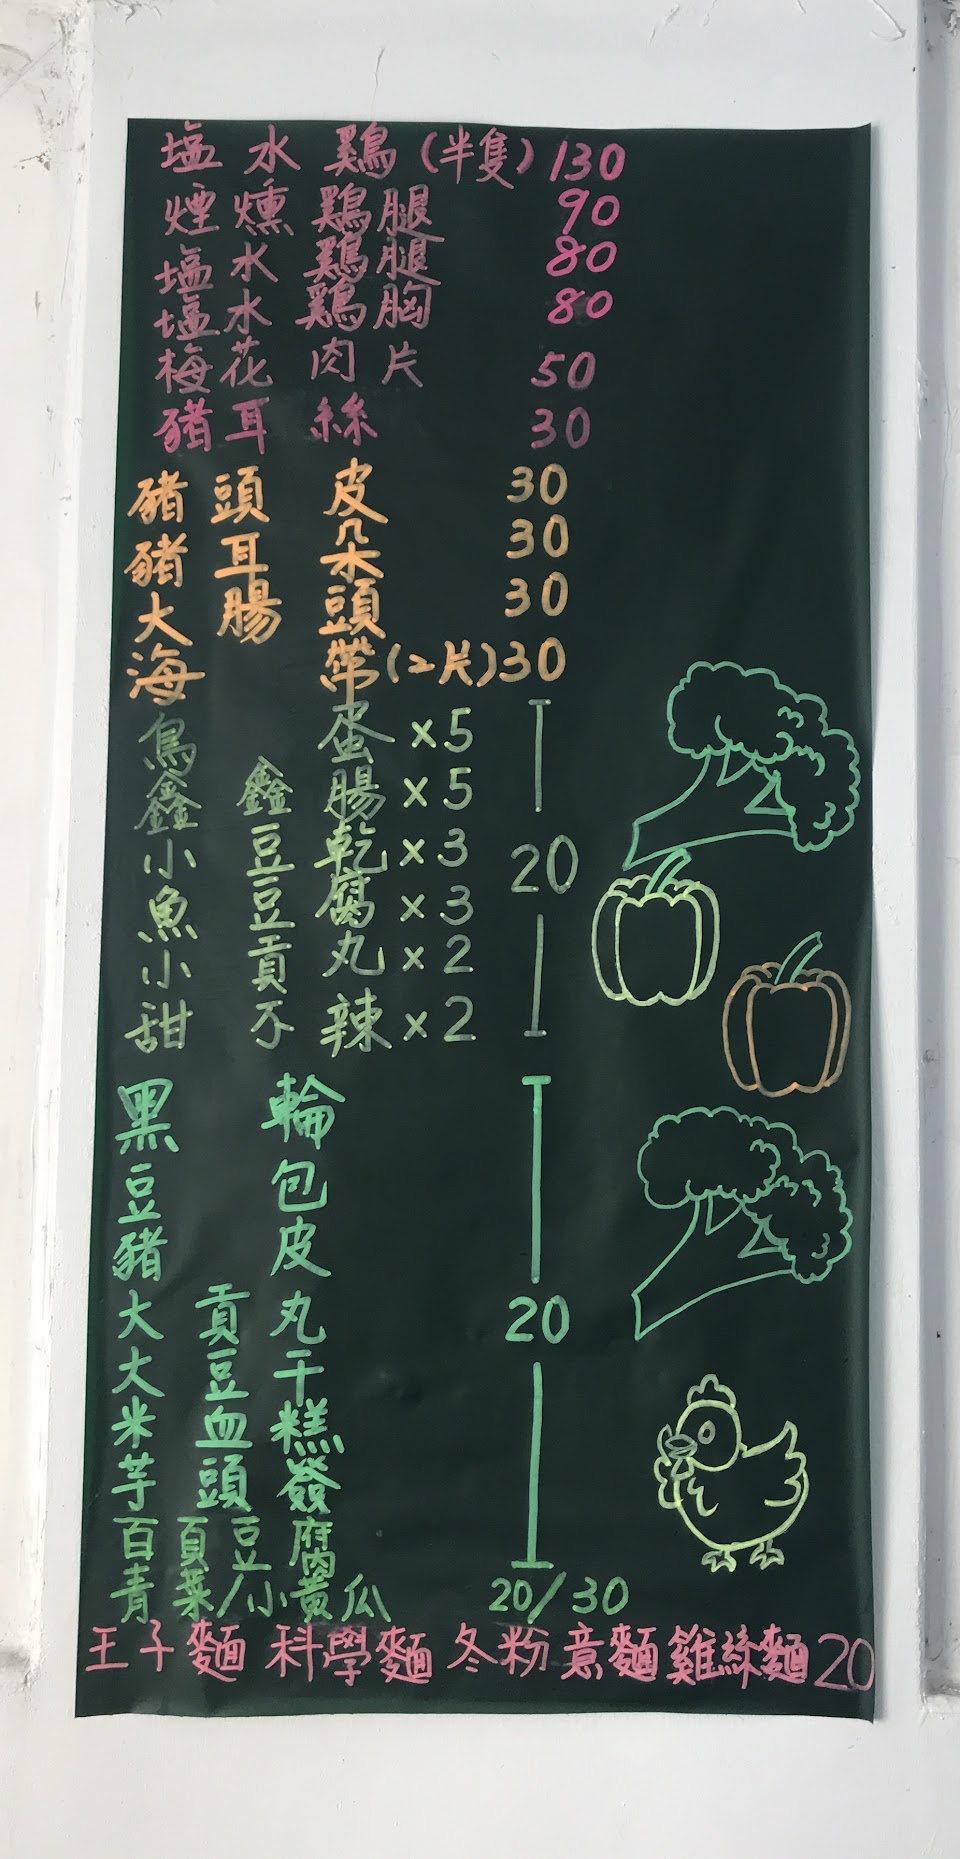 塩水鶏(半隻) 130
煙燻鶏腿 90
塩水鶏腿 80
塩水鶏胸 80
梅花肉片 50
豬耳絲 30
豬頭皮 30
豬耳朵 30
大腸頭 30
海帶(2片) 30
鳥蛋×5
鑫鑫腸×5
小豆乾×3
魚豆腐×3
20
小貢丸×2
甜不辣×2
黑輪
豆包
豬皮
大貢丸
20
大豆干
米血糕
芋頭簽
百頁豆腐
青菜/小黄瓜 20/30
王子麵 科學麵 冬粉 意麵 雞絲麵 20